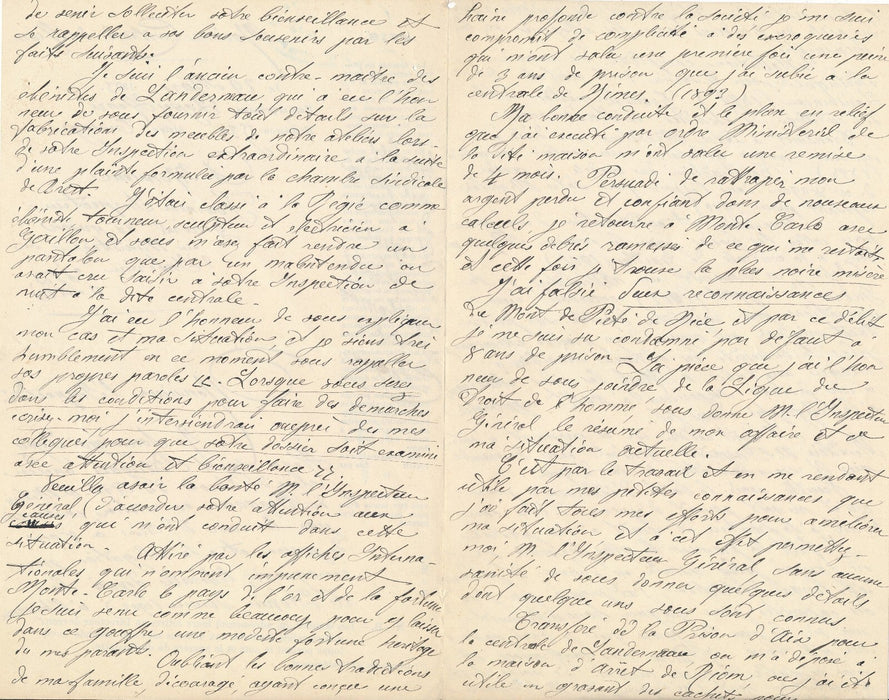 de venir solliciter votre bienveillance et
se rappeller a ses bons souvenirs par les
faits suivants.
Je suis l'ancien contre-maître des
ébénistes de Landerneau qui a eu l'hon
neur de vous fournir tout détails sur la
fabrication des meubles de notre ateliers lors
de votre Inspection extraordinaire à la suite
d'une plainte formulée par la chambre sindicale
de Brest. J'étais classé à la Régie comme
ébéniste tourneur, sculpteur et électricien à
Gaillon, et vous m'avez fait rendre un
pantalon que par un malentendu on
avait cru saisir à votre Inspection de
nuit à la dite centrale.
J'ai eu l'honneur de vous expliquer
mon cas et ma situation, et je viens très
humblement en ce moment vous rappeller
vos propres paroles « Lorsque vous serez
dans les conditions pour faire des demarches
écrivez-moi j'interviendrai auprès des mes
collègues pour que votre dossier soit examiné
avec attention et bienveillance »
Veuillez avoir la bonté M. l'Inspecteur
Général d'accorder votre attention aux
causes qui m'ont conduit dans cette
situation. Attiré par les affiches Interna-
tionales qui nomment impunément
Monte-Carlo le pays de l'or et de la fortune
Je suis venu comme beaucoup pour y laisser
dans ce gouffre une modeste fortune heritage
de mes parents. Oubliant les bonnes traditions
de ma famille, découragé, ayant conçue une
haine profonde contre la société je me suis
compromit de complicité à des escroqueries
qui m'ont valu une première fois une peine
de 3 ans de prison que j'ai subie à la
centrale de Nimes. (1893)
Ma bonne conduite et le plan en relief
que j'ai executé par ordre Ministériel de
la dite maison m'ont valu une remise
de 4 mois. Persuadé de rattraper mon
argent perdu et confiant dans de nouveaux
calculs je retourne à Monte-Carlo avec
quelques débris ramassés de ce qui me restait,
et cette fois j'y trouve la plus noire misère
J'ai falsifié deux reconnaissances
du Mont de Piété de Nice, et par ce délit
je me suis vu condamné par défaut à
8 ans de prison – La pièce que j'ai l'hon
neur de vous joindre de la Ligue du
Droit de l'homme, vous donne M. l'Inspecteur
Général le résumé de mon affaire et de
ma situation actuelle.
C'est par le travail et en me rendant
utile par mes petites connaissances que
j'ai fait tous mes efforts pour améliorer
ma situation, et à cet effet permettez-
moi M. l'Inspecteur Général sans aucune
vanité de vous donner quelques détails
dont quelque uns vous sont connus.
Transféré de la Prison d'Aix pour
la centrale de Landerneau on m'a déposé à
la maison d'Arrêt de Riom, ou j'ai été
utile en gravant des cachets pour